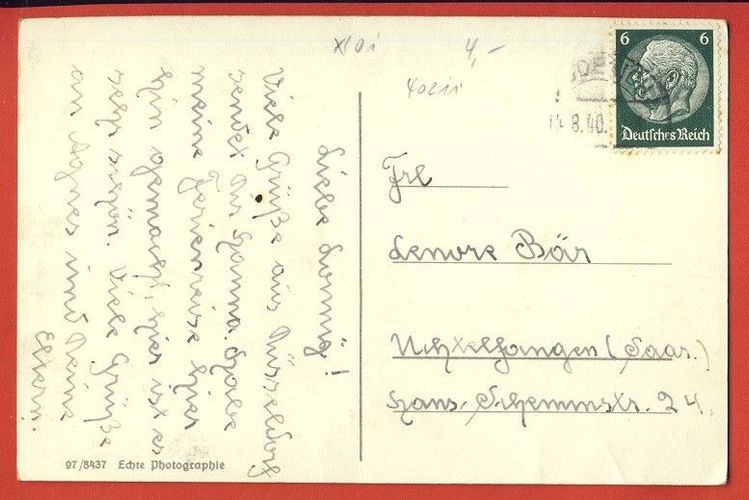 4,-
6 6
Deutsches Reich
8.40.
Liebe
Viele Grüße aus Düsseldorf
sendet dir Hanna. Habe
meine Ferienreise hier
hin gemacht, hier ist es
sehr schön. Viele Grüße
an Agnes und Deine
Eltern.
Frl
Lenore Bär
Uchtelfangen (Saar.)
Hans-Schemmstr. 24.
97/8437 Echte Photographie